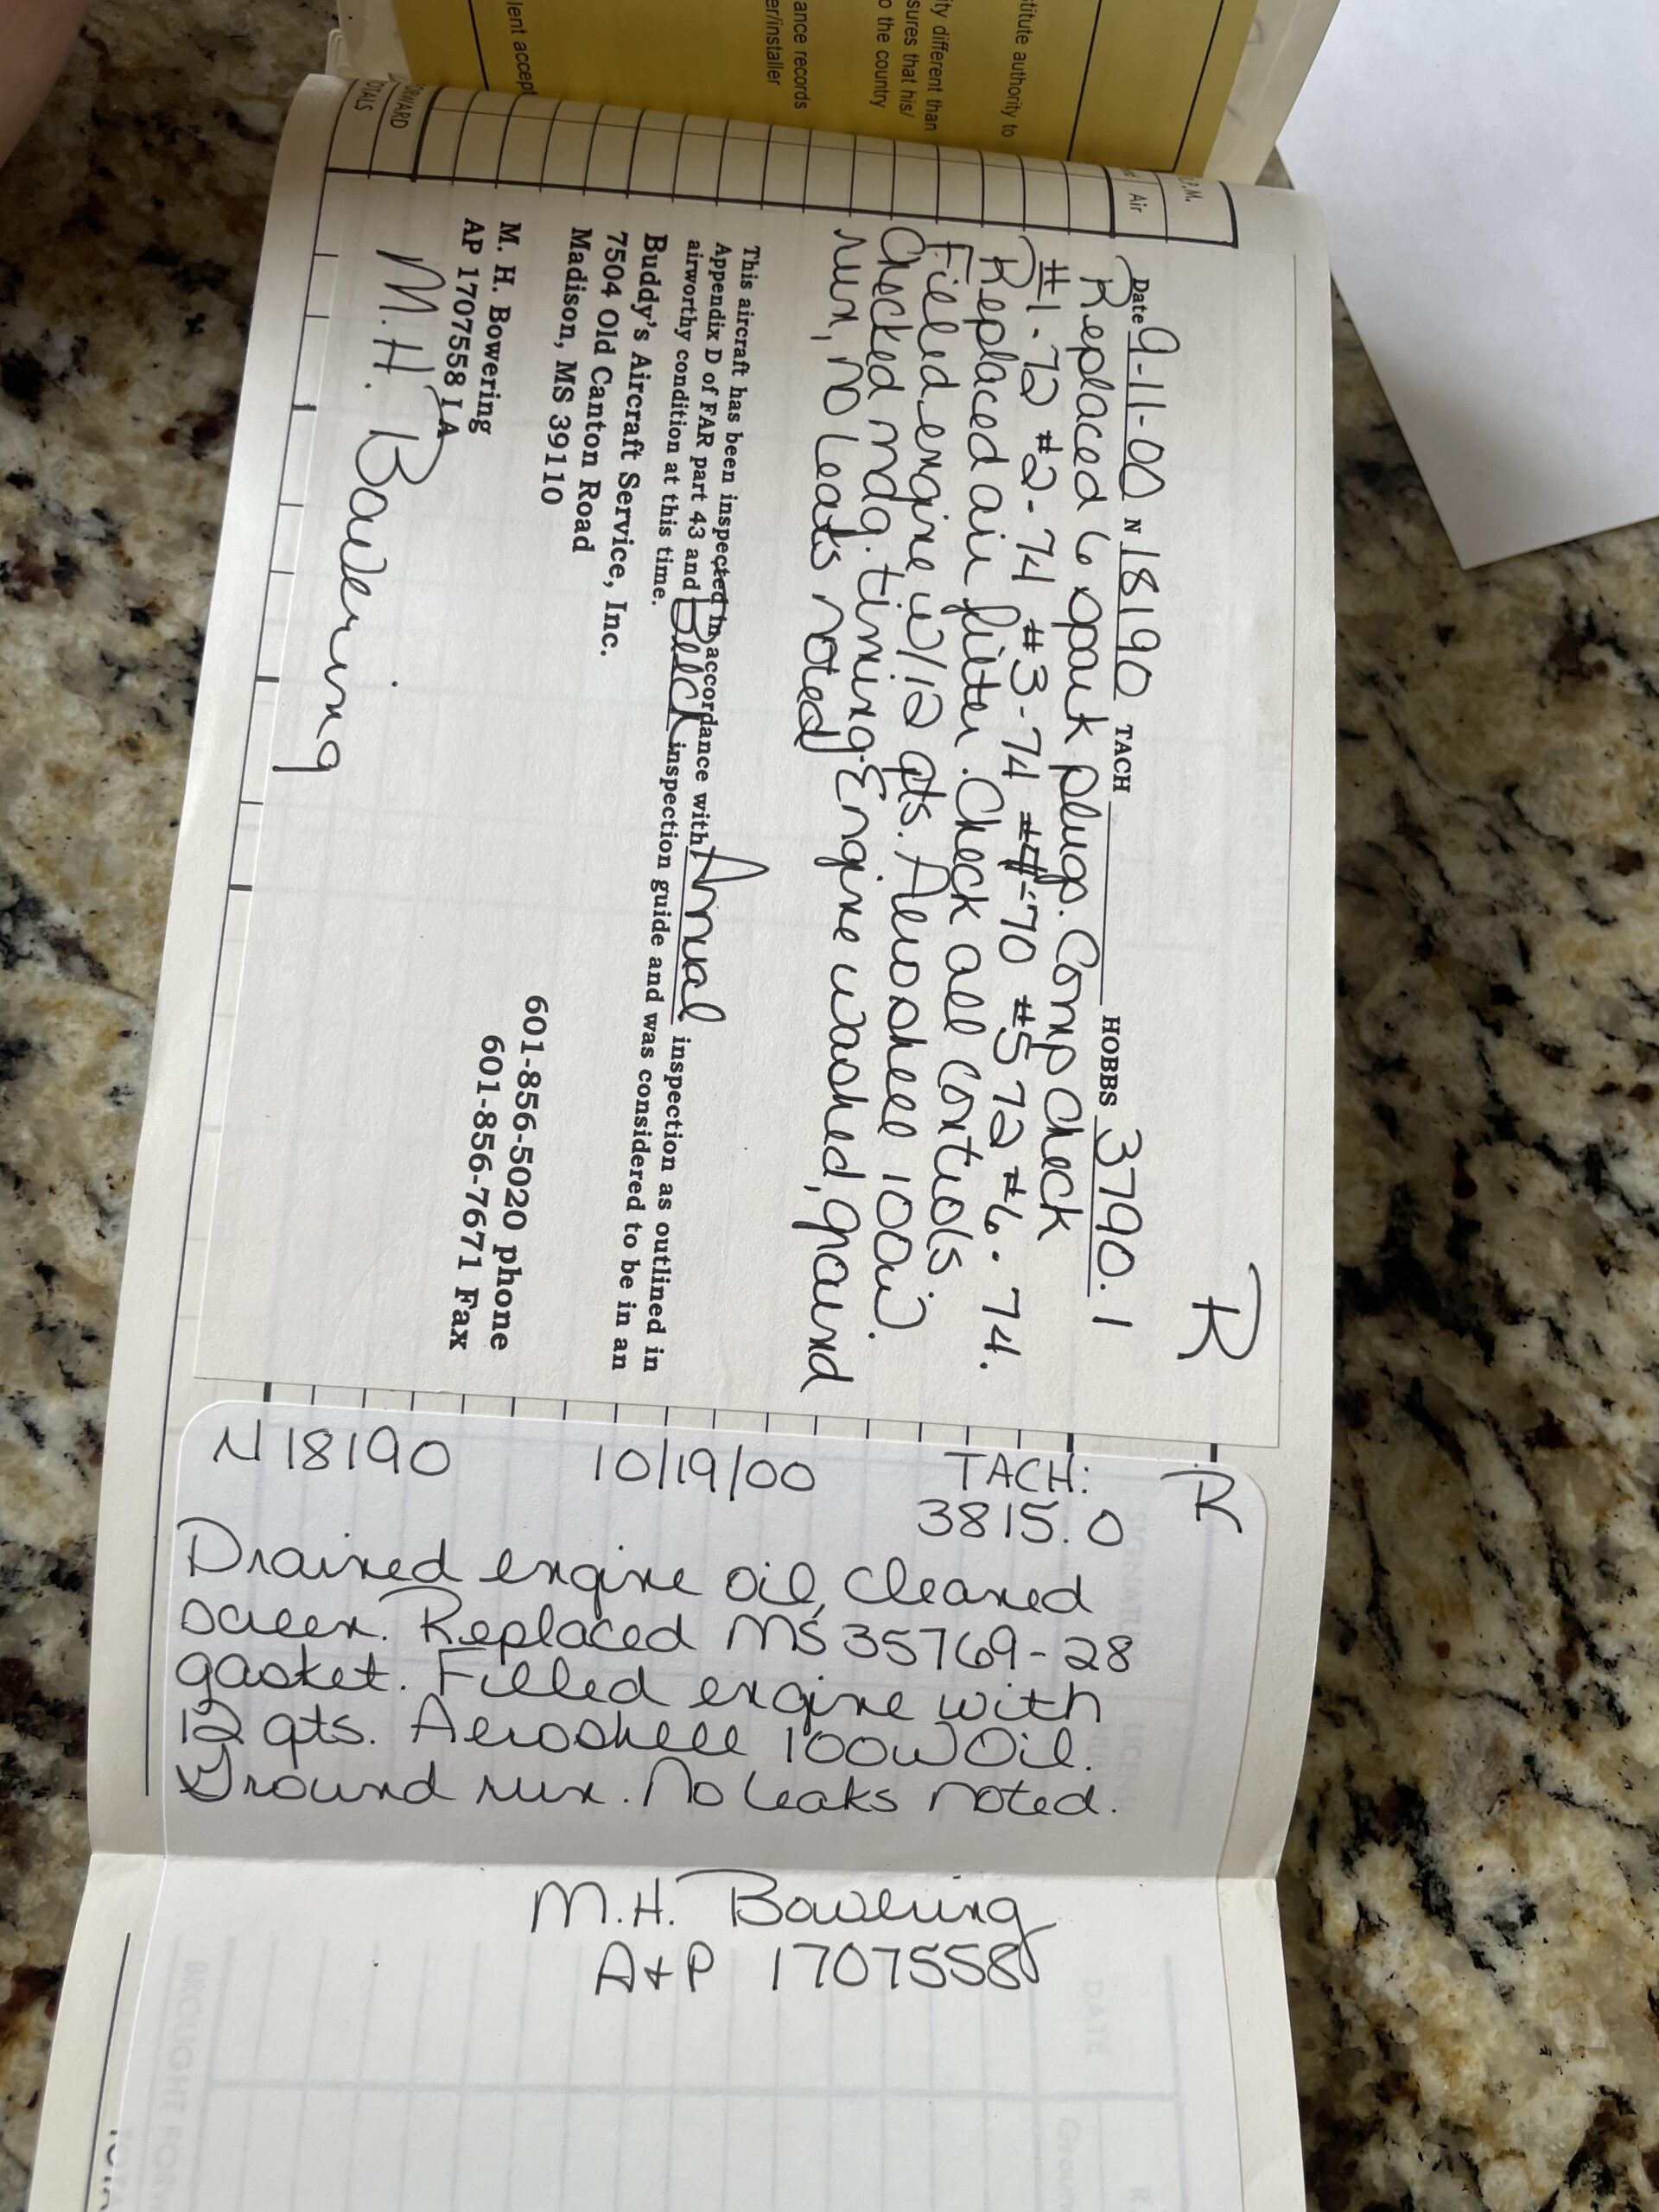 stitute authority to
ity different than
sures that his/
o the country
ance records
er/installer
lent accept
R.P.M.
Air
ORWARD
R
Date 9-11-00 N 18190 TACH HOBBS 3790.1
Replaced 6 spark plugs. Comp check
#1-72 #2-74 #3-74 #4-70 #5 72 #6-74.
Replaced air filter. Check all controls
Filled engine w/12 qts. Aeroshell 100w.
Checked mag. timing. Engine washed, ground
run, no leaks noted
This aircraft has been inspected in accordance with Annual inspection as outlined in
Appendix D of FAR part 43 and Beech inspection guide and was considered to be in an
airworthy condition at this time.
Buddy's Aircraft Service, Inc.
7504 Old Canton Road
Madison, MS 39110
601-856-5020 phone
601-856-7671 Fax
M. H. Bowering
AP 1707558 IA
M.H. Bowering
R
N18190 10/19/00 TACH:
3815.0
Drained engine oil, cleaned
screen. Replaced MS35769-28
gasket. Filled engine with
12 qts. Aeroshell 100W Oil.
Ground run. No leaks noted.
M.H. Bowering
A+P 1707558